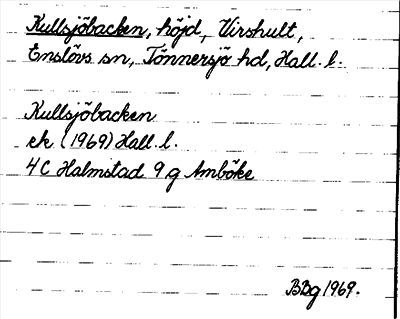 Kullsjöbacken, höjd, Virshult,
Enslövs sn, Tönnersjö hd, Hall. l.
Kullsjöbacken
ek (1969) Hall. l.
4 C Halmstad 9 g Amböke
BBg 1969.